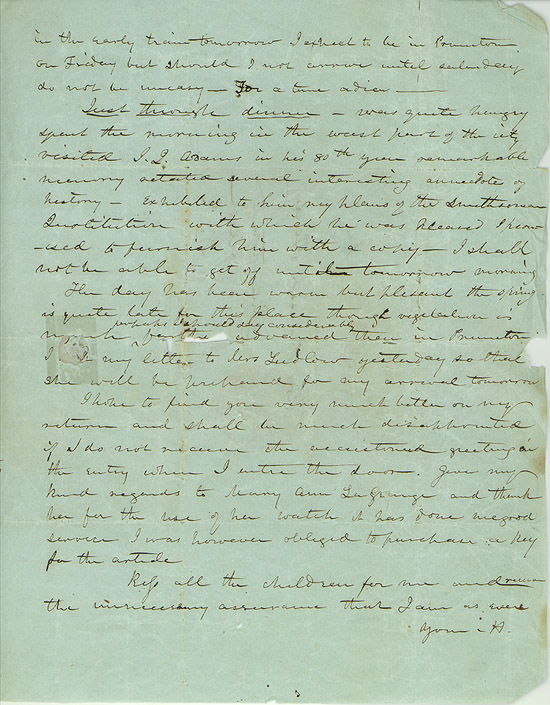 in the early train tomorrow I expect to be in Princeton
on Friday but should I not arrive until saturday
do not be uneasy – For a time adieu
Just through dinner – was quite hungry
spent the morning in the west part of the city
visited J. Q. Adams in his 80th year remarkable
memory stated several interesting anecdotes of
history – Exhibited to him my plans of the Smithsonian
Institution with which he was pleased I prom
-ised to furnish him with a copy – I shall
not be able to get off until tomorrow morning
The day has been warm but plesent the spring
is quite late for this place though vegitation is
perhaps I should say considerable
advanced than in Princeton
I my letter to Mrs Ludlow yesterday so that
she will be prepared for my arrival tomorrow
I hope to find you very much better on my
return and shall be much disappointed
if I do not receive the accustomed greeting in
the entry when I enter the door. Give my
kind regards to Mary Ann LaGrange and thank
her for the use of her watch it has done me good
service I was however obliged to purchase a key
for the article
Kiss all the children for me and receive
the unnecessary assurance that I am as ever
Your H.